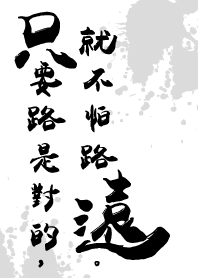 只要路是對的，
就不怕路遠。